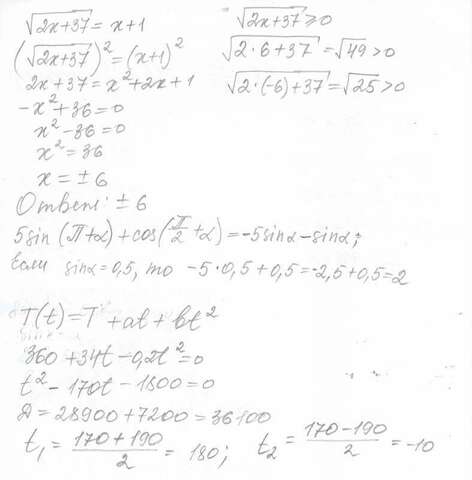 √(2x+37) = x+1
(√(2x+37))² = (x+1)²
2x+37 = x²+2x+1
-x²+36=0
x²-36=0
x²=36
x=±6
√(2x+37) ≥ 0
√(2·6+37) = √49 > 0
√(2·(-6)+37) = √25 > 0
Ответ: ±6
5sin(π+α)+cos(π/2+α) = -5sinα-sinα;
Если sinα=0,5, то -5·0,5+0,5=-2,5+0,5=2
T(t)=T+at+bt²
360+34t-0,2t²=0
t²-170t-1800=0
Д=28900+7200=36100
t₁ = (170+190)/2 = 180; t₂ = (170-190)/2 = -10